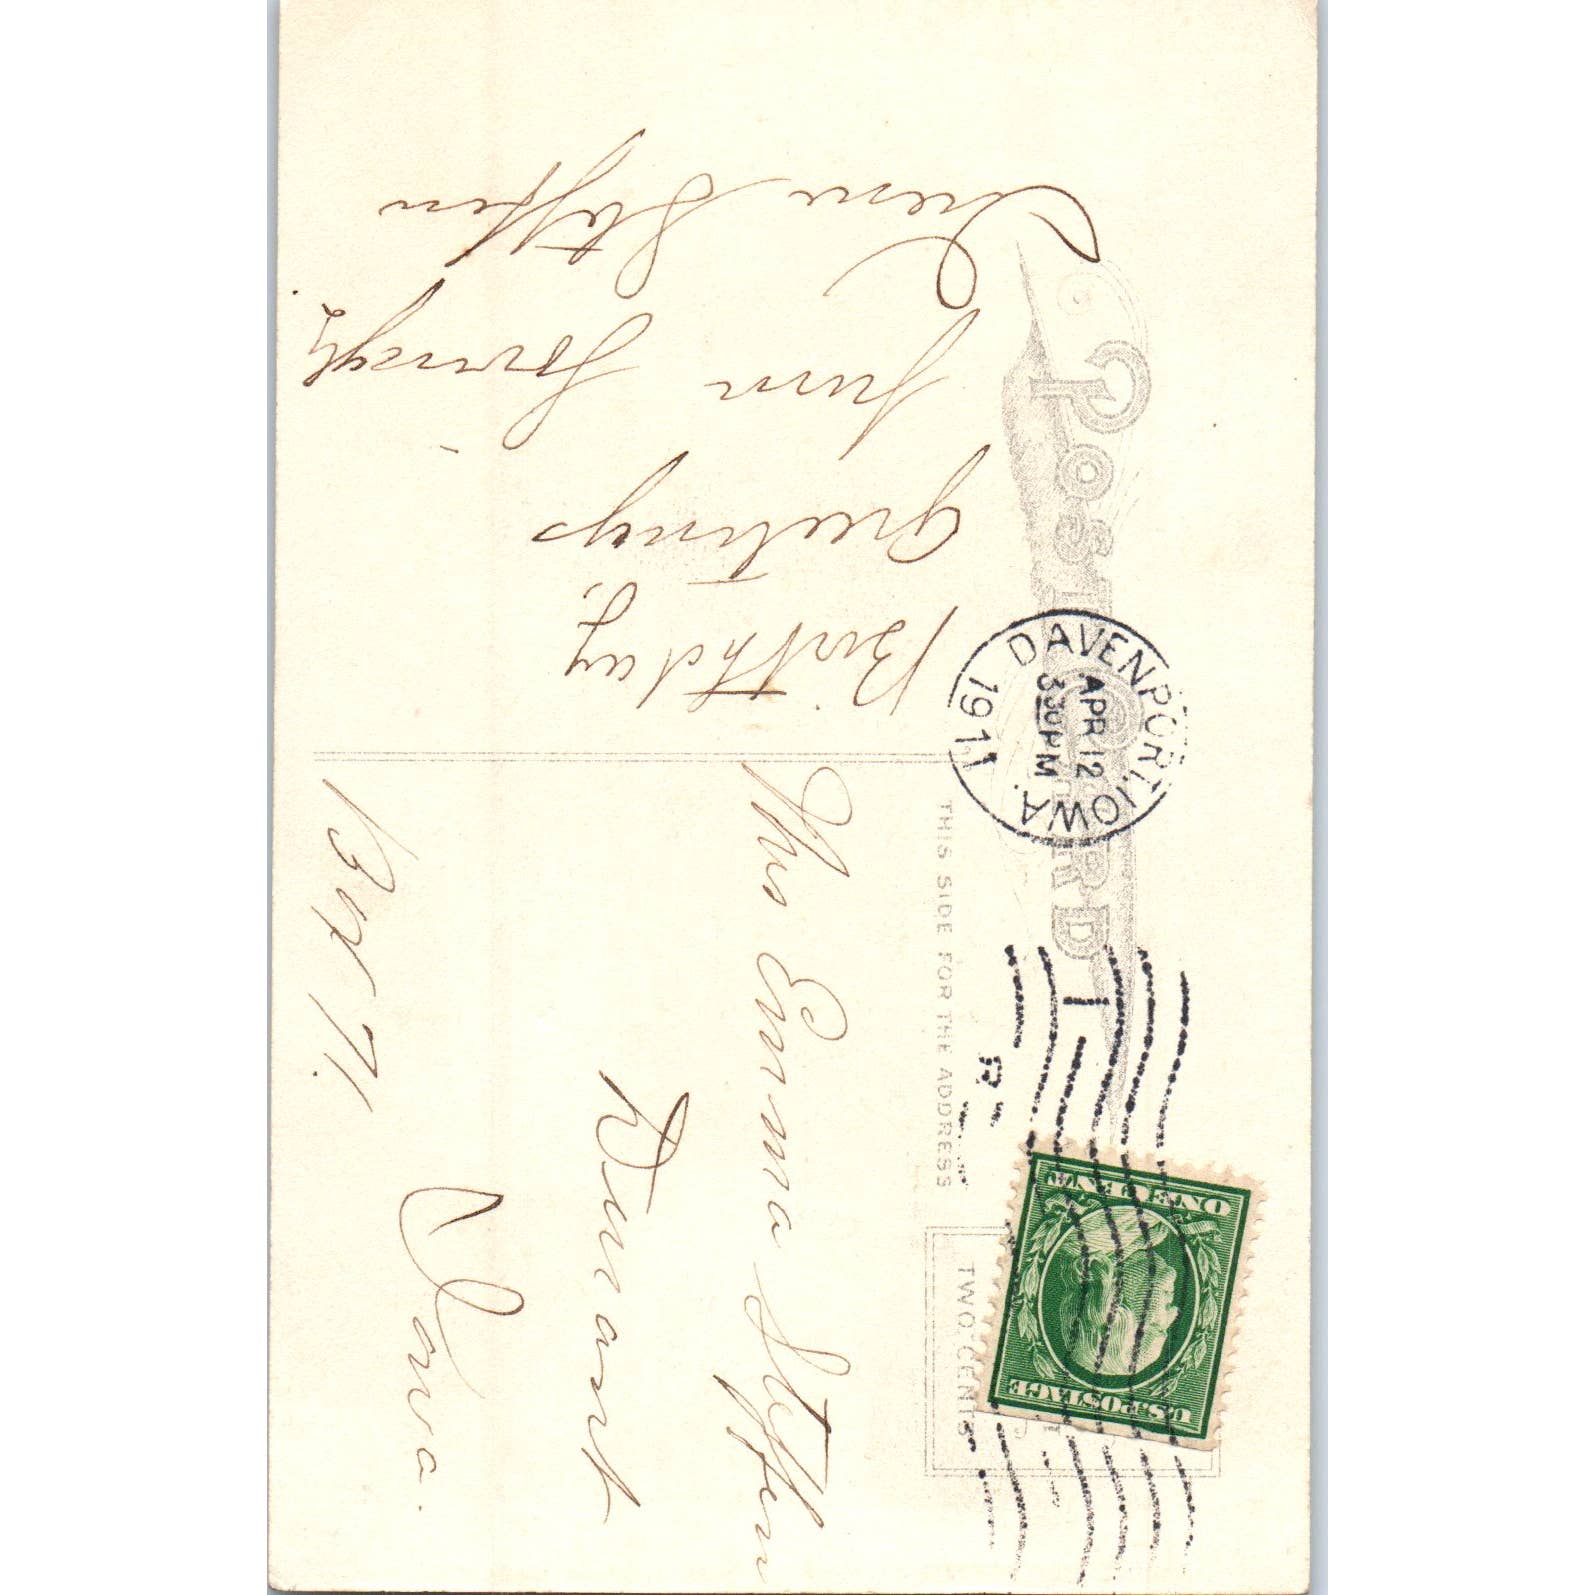 POST CARD
THIS SIDE FOR THE ADDRESS
TWO CENTS
U.S. POSTAGE
ONE CENT
DAVENPORT, IOWA.
APR 12
3 30 PM
1911
Birthday
Greetings
from
Irena Steffen
Mrs Emma Steffen
Durant
Iowa.
Box 71.